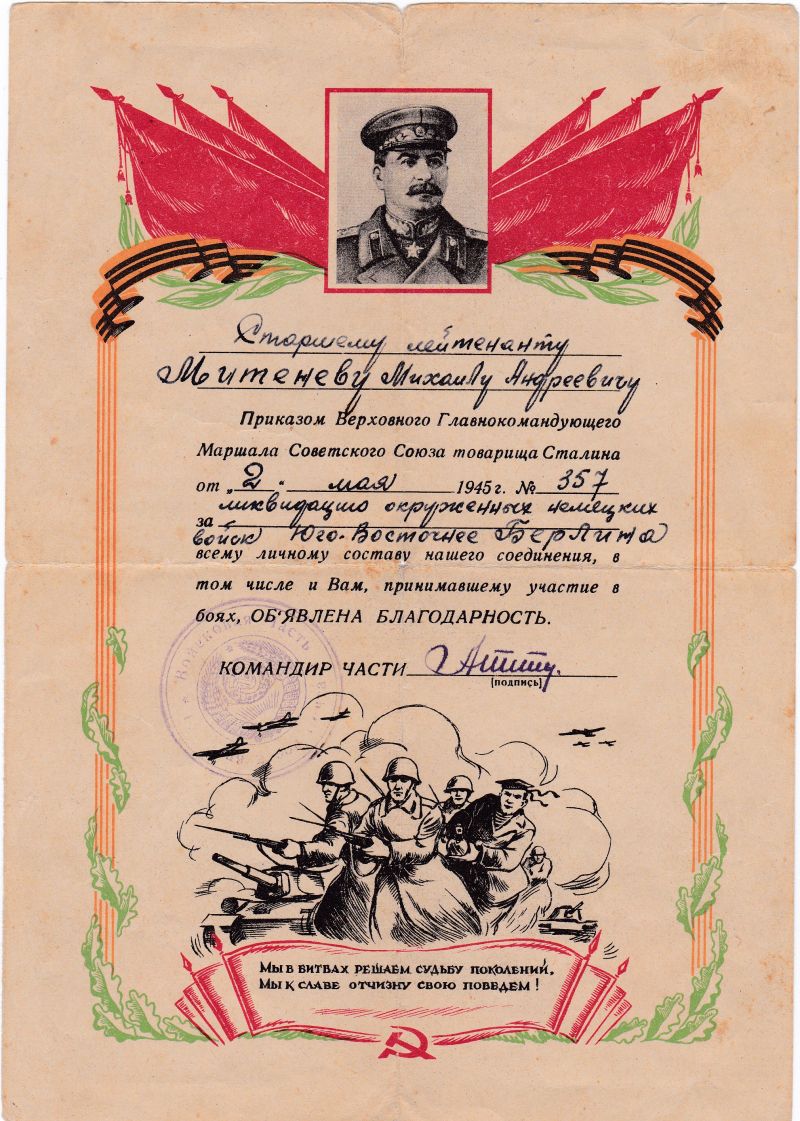 Старшему лейтенанту
Митеневу Михаилу Андреевичу
Приказом Верховного Главнокомандующего
Маршала Советского Союза товарища Сталина
от „2“ мая 1945 г. № 357
за ликвидацию окруженных немецких
войск Юго-Восточнее Берлина
всему личному составу нашего соединения, в
том числе и Вам, принимавшему участие в
боях, ОБ'ЯВЛЕНА БЛАГОДАРНОСТЬ.
КОМАНДИР ЧАСТИ
(подпись)
Войсковая часть
МЫ В БИТВАХ РЕШАЕМ СУДЬБУ ПОКОЛЕНИЙ,
МЫ К СЛАВЕ ОТЧИЗНУ СВОЮ ПОВЕДЕМ!